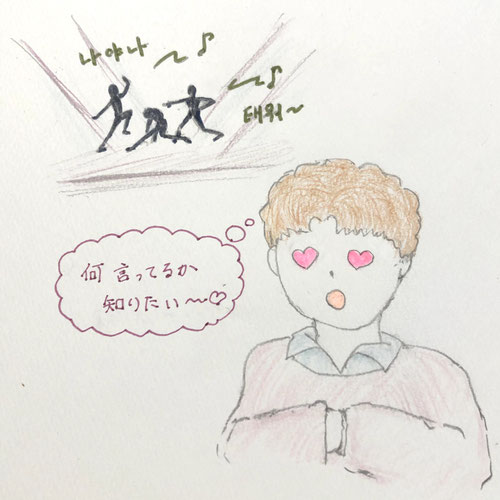 나야나 ~♪
~♪
태워~
何言ってるか
知りたい~♡